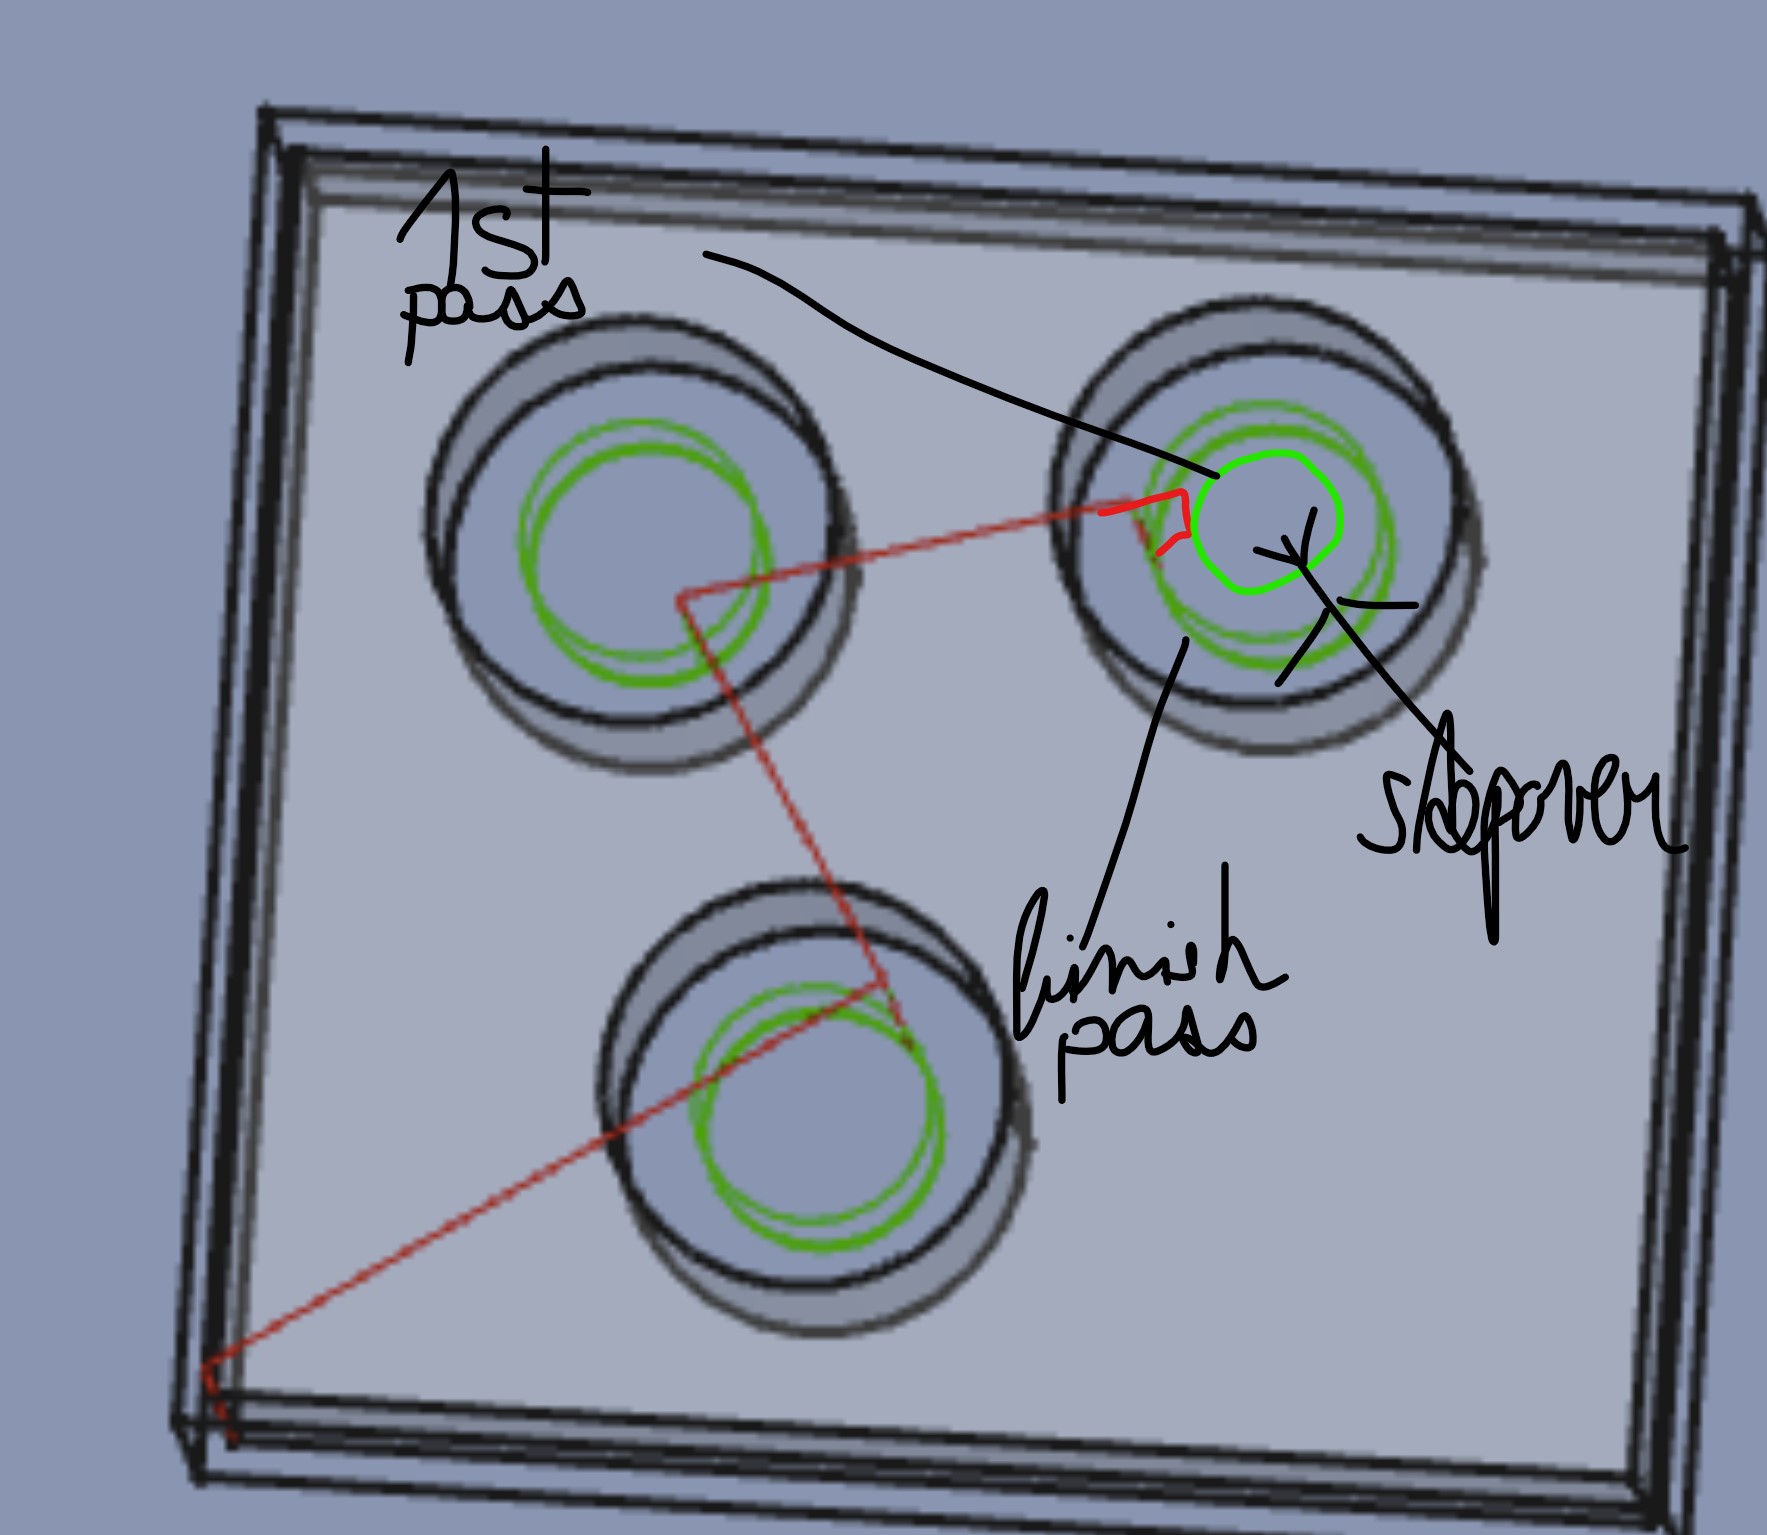 1st
pass
stepover
finish
pass